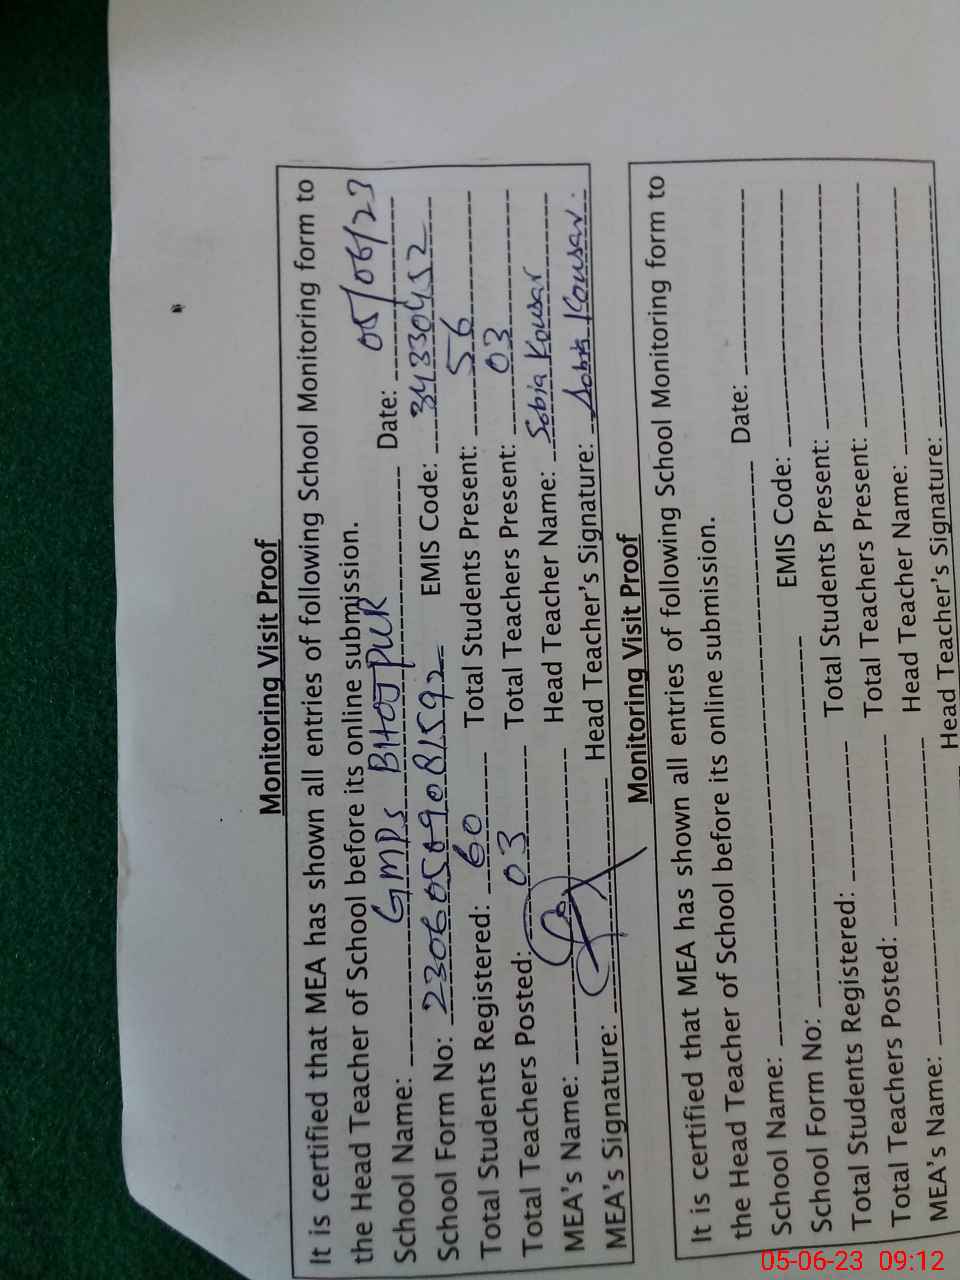 Monitoring Visit Proof
It is certified that MEA has shown all entries of following School Monitoring form to
the Head Teacher of School before its online submission.
School Name: GMPS BHOJPUR Date: 05/06/23
School Form No: 23060509081592 EMIS Code: 34330452
Total Students Registered: 60 Total Students Present: 56
Total Teachers Posted: 03 Total Teachers Present: 03
MEA's Name: Head Teacher Name: Sobia Kousar
MEA's Signature: Head Teacher's Signature: Sobia Kousar.
Monitoring Visit Proof
It is certified that MEA has shown all entries of following School Monitoring form to
the Head Teacher of School before its online submission.
School Name: Date:
School Form No: EMIS Code:
Total Students Registered: Total Students Present:
Total Teachers Posted: Total Teachers Present:
MEA's Name: Head Teacher Name:
Head Teacher's Signature:
05-06-23 09:12